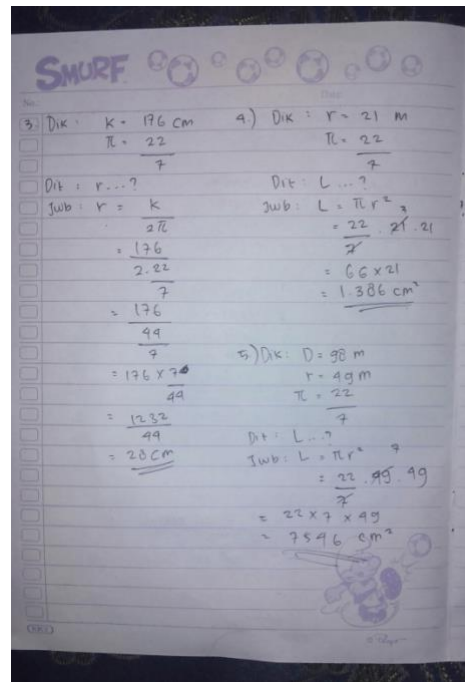 SMURF
No.
Date
3. Dik : k = 176 cm
π = 22
7
Dit : r...?
Jwb : r = k
2π
= 176
2.22
7
= 176
44
7
= 176 x 7
44
= 1232
44
= 28 cm
4.) Dik : r = 21 m
π = 22
7
Dit : L ...?
Jwb : L = πr²
3
= 22 . 21 . 21
7
= 66 x 21
= 1.386 cm²
5.) Dik : D = 98 m
r = 49 m
π = 22
7
Dit : L...?
Jwb : L = πr²
7
= 22 . 49 . 49
7
= 22 x 7 x 49
= 7546 cm²